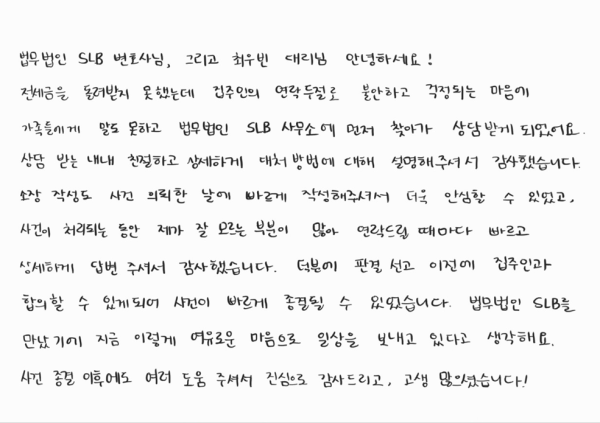 법무법인 SLB 변호사님, 그리고 최우빈 대리님 안녕하세요!
전세금을 돌려받지 못했는데 집주인의 연락두절로 불안하고 걱정되는 마음에
가족들에게 말도 못하고 법무법인 SLB 사무소에 먼저 찾아가 상담받게 되었어요.
상담 받는 내내 친절하고 상세하게 대처방법에 대해 설명해주셔서 감사했습니다.
소장 작성도 사건 의뢰한 날에 바로 작성해주셔서 더욱 안심할 수 있었고,
사건이 처리되는 동안 제가 잘 모르는 부분이 많아 연락드릴 때마다 빠르고
상세하게 답변 주셔서 감사했습니다. 덕분에 판결 선고 이전에 집주인과
합의할 수 있게되어 사건이 빠르게 종결될 수 있었습니다. 법무법인 SLB를
만났기에 지금 이렇게 여유로운 마음으로 일상을 보내고 있다고 생각해요.
사건 종결 이후에도 여러 도움 주셔서 진심으로 감사드리고, 고생 많으셨습니다!